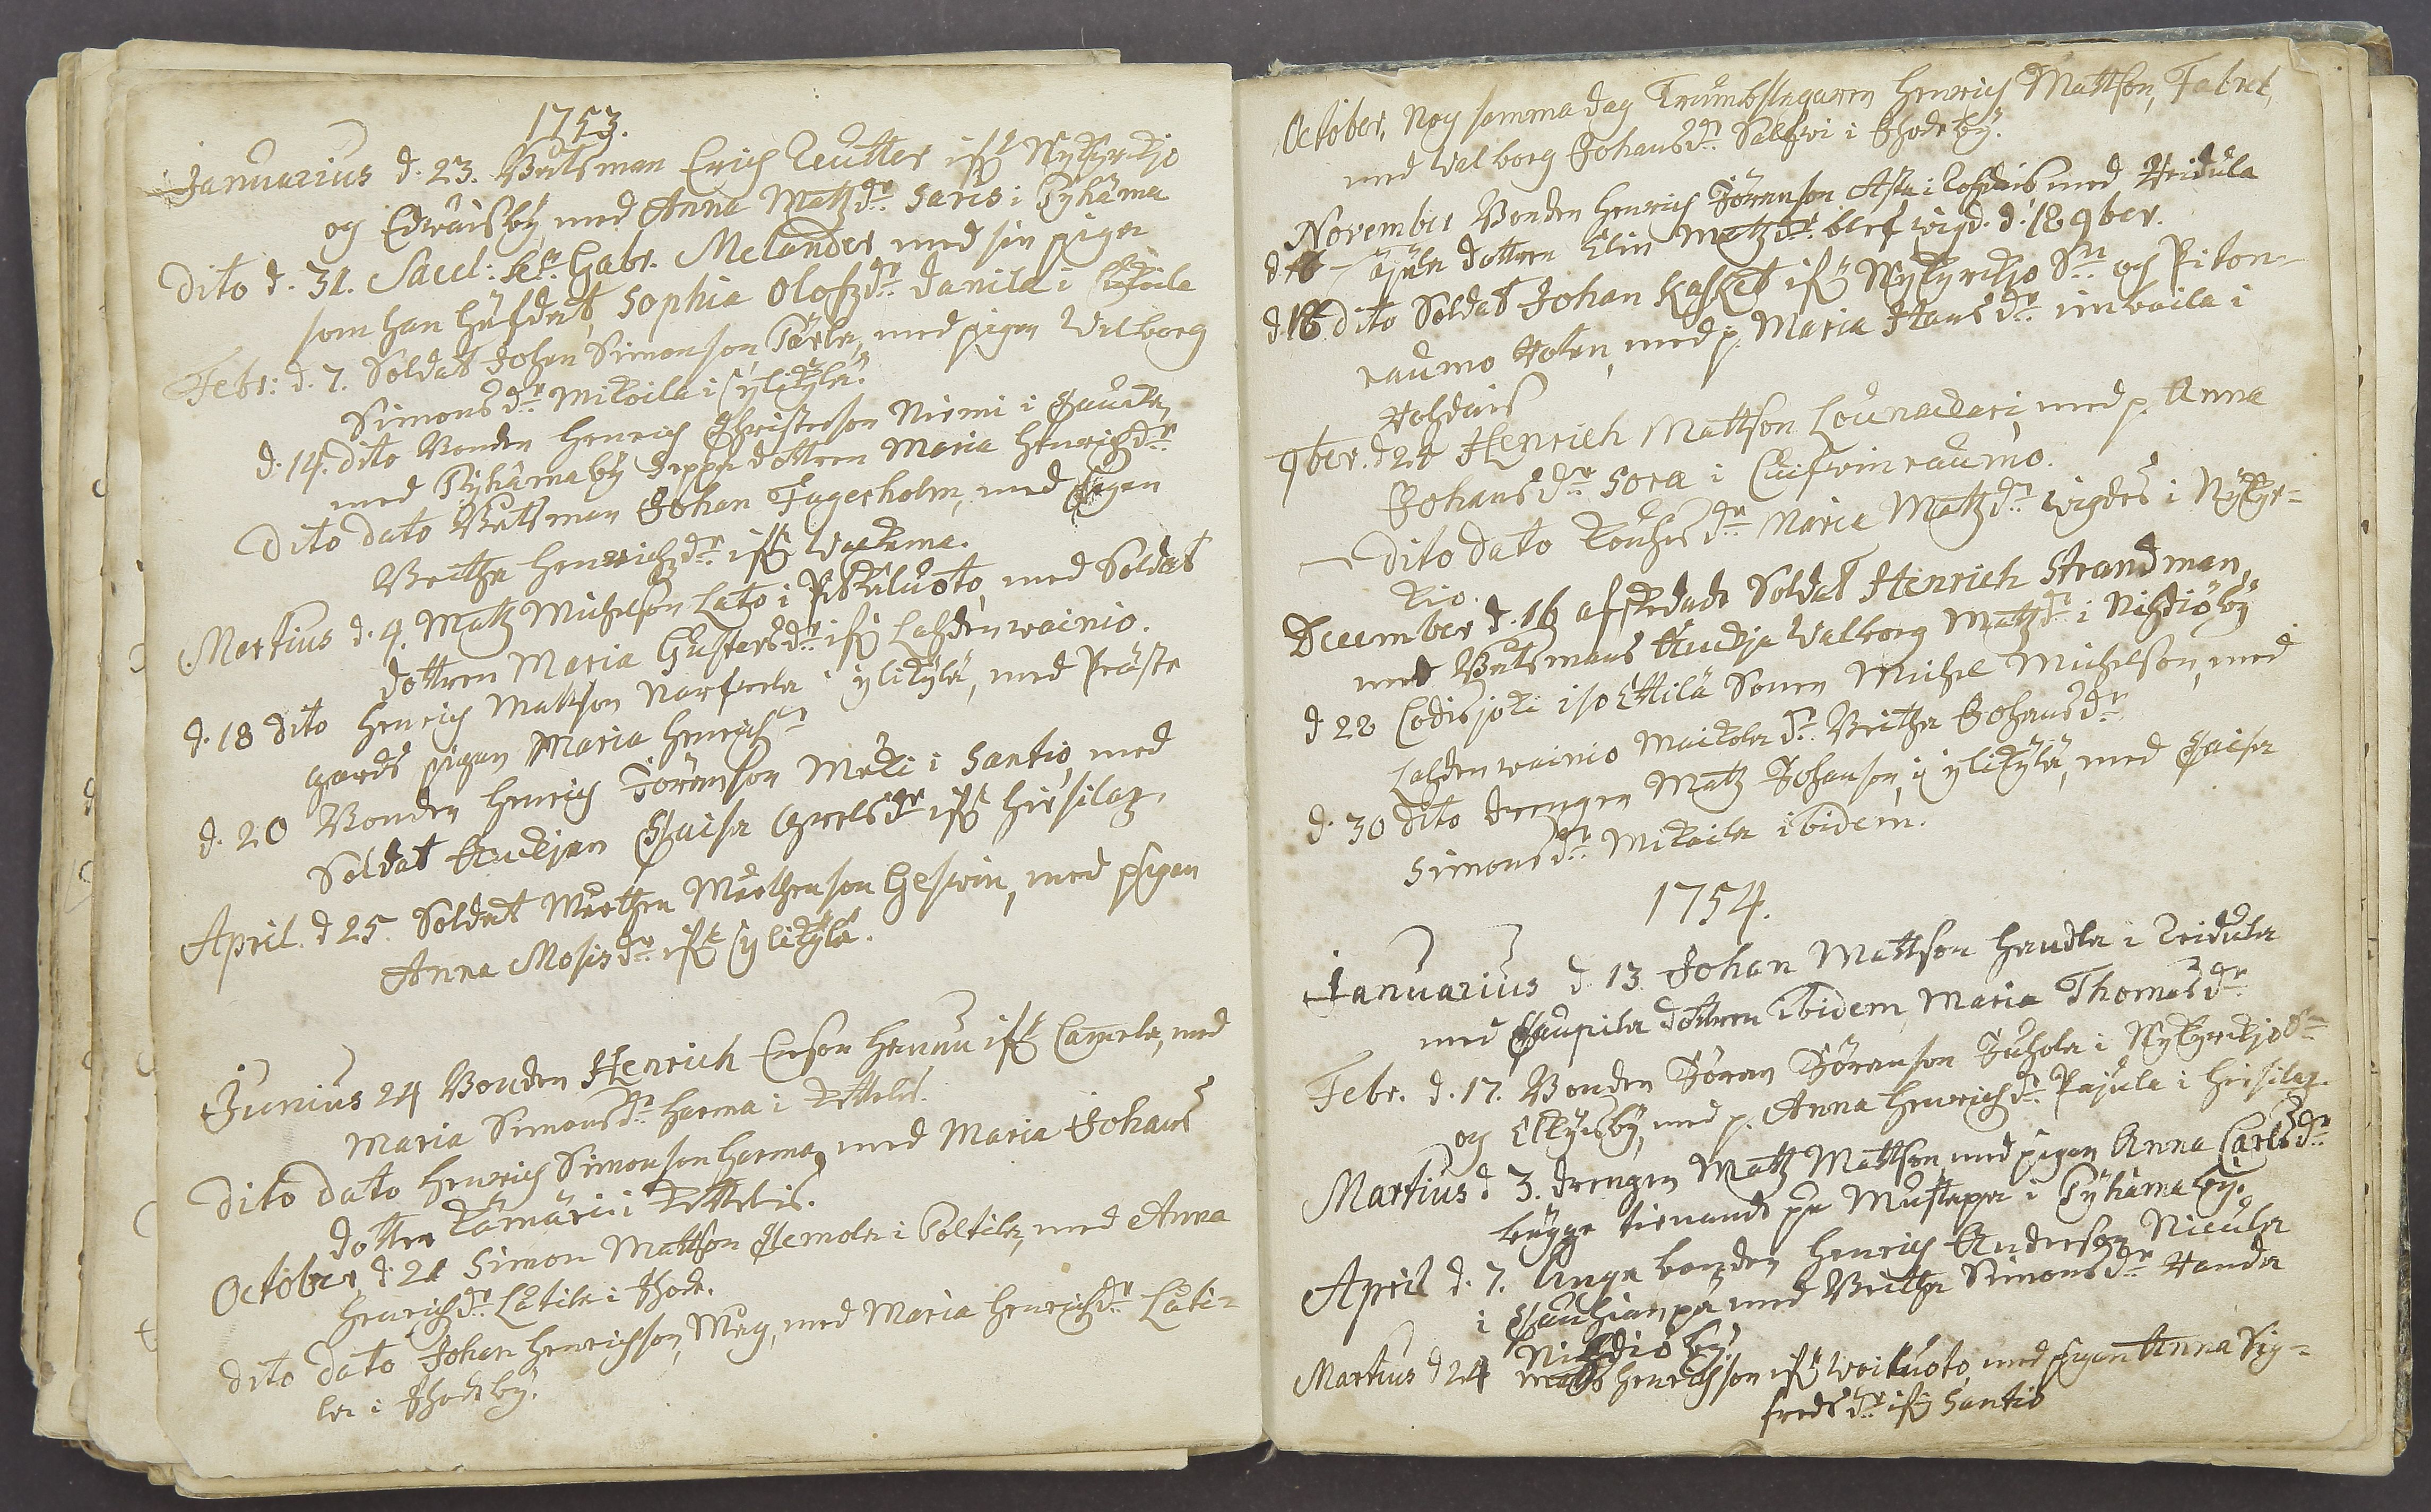 1753.
Januarius d. 23. Båtsman Erich Reutter ifr. Nykyrckjo
og Edväisby, med Anna Matzdr. Saris i Pyhäma
Dito d. 31. Sacel: hr. Gabr. Melander med sin piga
som han häfdat, Sophia Olofzdr. Danila i
Febr: d. 7. Soldat Johan Simonson Pärle, med pigan Walborg
Simonsdr. Mikoila i ylikylä.
d. 14. dito Bonden Henrich Christerson Niemi i
med Pyhämaby Seppä dottren Maria Henrichsdr.
Dito dato Båtsman Johan Fagerholm, med Pigan
Britha Henrichzdr. ifr.
Martius d. 4. Matz Michelson Lato i Pitkäluoto, med Soldat
dottren Maria Gustafsdr. ifr. Lahdenwainio.
d. 18 dito Henrich Mattson Narfwela i ylikylä, med Präste
gårds pigan Maria Henrichsdr.
d. 20 Bonden Henrich Jöranson Mäki i Santio, med
Soldat Änckjan Caisa Grelsdr. ifr. Hirslax.
April. d 25. Soldat Mårthen Mårthenson Geswin, med pigan
Anna Mosisdr. ifr. ylikylä.
Junius 24 Bonden Henrich Erson Hannu ifr. Camela, med
Maria Simonsdr. Harma i Kettelis.
Dito dato Henrich Simonson Harma, med Maria Johans
dotter Kämäri i Kettelis.
October, d. 21 Simon Mattson Clemola i Poltila, med Anna
Henrichsdr. Lätilä i Thode.
Dito dato Johan Henrichson, Mag, med Maria Henrichsdr. Läti-
la i Thodeby.
October, Nog samma dag Trumbslagaren Henrich Mattson, Falck,
med Walborg Johansdr. Salfwi i Thodeby.
November Bonden Henrich Jöranson Asta i Rohdais med Reidula
d 16 dottren Elin Matzdr. blef wigd. d. 18 9ber.
d. 18 dito Soldat Johan Kasket ifr. Nykyrckjo Sn. og Piton-
raumo Rotan, med p. Maria Hansdr. unbaila i
Rohdais
9ber. d 24 Henrich Mattson Lounawäri, med p. Anna
Johansdr. Sora i raumo.
Dito dato Kouhisdr. Maria Matzdr. wigdes i Nykyr-
kio.
December d. 16 afskedade Soldat Henrich Strandman,
med Båtsmans Änckja Walborg Matzdr. i Nihdiöby
d 28 Codisjoki iso Ettilä Sonen Michel Michelson, med
Lahdenwainio Maickola dr. Britha Johansdr.
d. 30 dito drengen Matz Johanson, i ylikylä, med Caisa
Simonsdr. Mikoila ibidem.
1754.
Januarius d. 13 Johan Mattson Haudla i Reidula
med Caupila dottren ibidem, Maria Thomasdr.
Febr. d. 17. Bonden Jöran Jöranson Juhola i Nykyrckjo Sn.
og Elkyisby, med p. Anna Henrichsdr. Pajula i Hirslax.
Martius d 3. drengen Matz Mattson, med pigan Anna Carlsdr.
bägge tienande på Mustapä i Pyhämaby.
April d. 7. Unga bonden Henrich Anderson Nicula
i Cauhianpä med Britha Simonsdr. Handa
Nihdiöby.
Martius d 24 Mats Henrichson ifr. Woiluoto, med pigan Anna Sig-
fredsdr. ifr. Santio